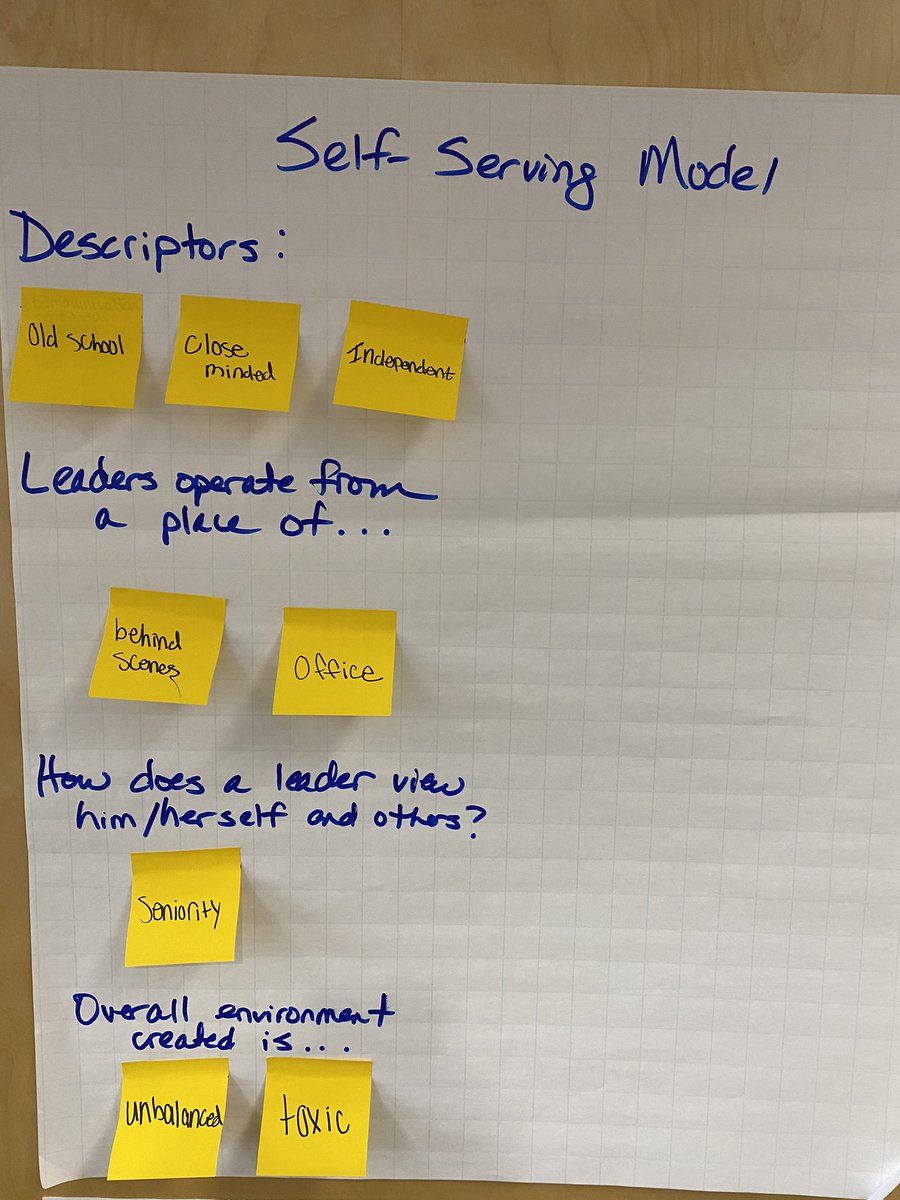 Self-Serving Model
Descriptors:
Old School
Close
minded
Independent
Leaders operate from
a place of...
behind
scenes
Office
How does a leader view
him/herself and others?
Seniority
Overall environment
created is...
unbalanced
toxic